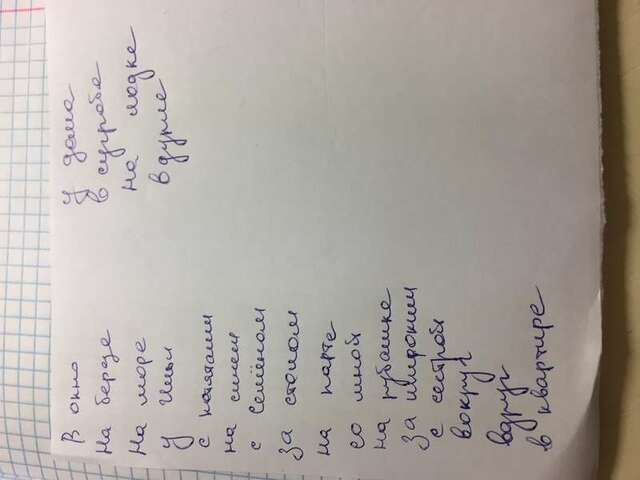 В окно
На берзе
На море
У Ильи
с котятами
на синем
с Семёном
За столом
на парте
со мной
на рубашке
За широким
с сестрой
вокруг
вдруг
в квартире
У дома
в сугробе
на лодке
в дупле